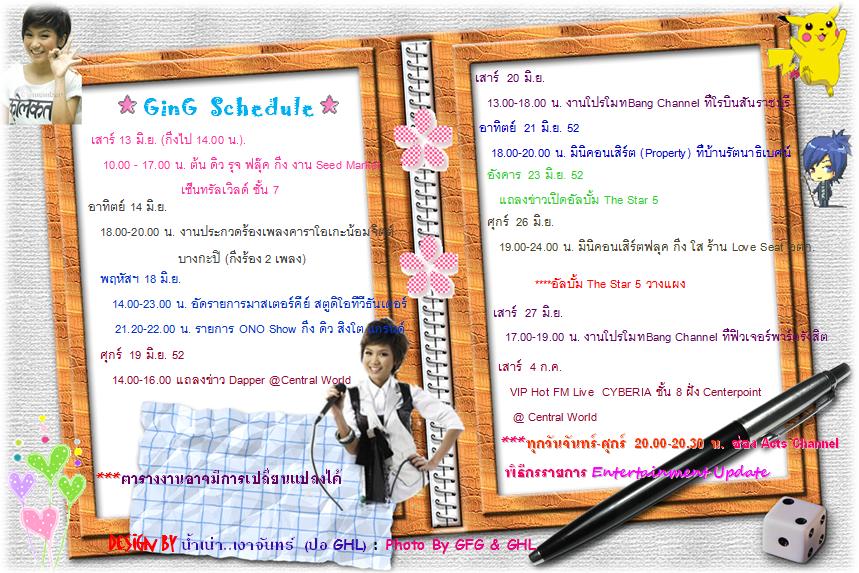 GinG Schedule
เสาร์ 13 มิ.ย. (กิ่งไป 14.00 น.).
10.00 - 17.00 น. ต้น ดิว รุจ ฟลุ๊ค กิ่ง งาน Seed
เซ็นทรัลเวิลด์ ชั้น 7
อาทิตย์ 14 มิ.ย.
18.00-20.00 น. งานประกวดร้องเพลงคาราโอเกะน้อมจิตต์
บางกะปิ (กิ่งร้อง 2 เพลง)
พฤหัสฯ 18 มิ.ย.
14.00-23.00 น. อัดรายการมาสเตอร์คีย์ สตูดิโอทีวีธันเดอร์
21.20-22.00 น. รายการ ONO Show กิ่ง ดิว สิงโต แกรนด์
ศุกร์ 19 มิ.ย. 52
14.00-16.00 แถลงข่าว Dapper @Central World
***ตารางงานอาจมีการเปลี่ยนแปลงได้
เสาร์ 20 มิ.ย.
13.00-18.00 น. งานโปรโมทBang Channel ที่โรบินสันราชบุรี
อาทิตย์ 21 มิ.ย. 52
18.00-20.00 น. มินิคอนเสิร์ต (Property) ที่บ้านรัตนาธิเบศน์
อังคาร 23 มิ.ย. 52
แถลงข่าวเปิดอัลบั้ม The Star 5
ศุกร์ 26 มิ.ย.
19.00-24.00 น. มินิคอนเสิร์ตฟลุค กิ่ง ใส ร้าน Love Seat
****อัลบั้ม The Star 5 วางแผง
เสาร์ 27 มิ.ย.
17.00-19.00 น. งานโปรโมทBang Channel ที่ฟิวเจอร์พาร์ครังสิต
เสาร์ 4 ก.ค.
VIP Hot FM Live CYBERIA ชั้น 8 ฝั่ง Centerpoint
@ Central World
***ทุกวันจันทร์-ศุกร์ 20.00-20.30 น. ช่อง Acts Channel
พิธีกรรายการ Entertainment Update
DESIGN BY น้ำเน่า..เงาจันทร์ (ปอ GHL) : Photo By GFG & GHL